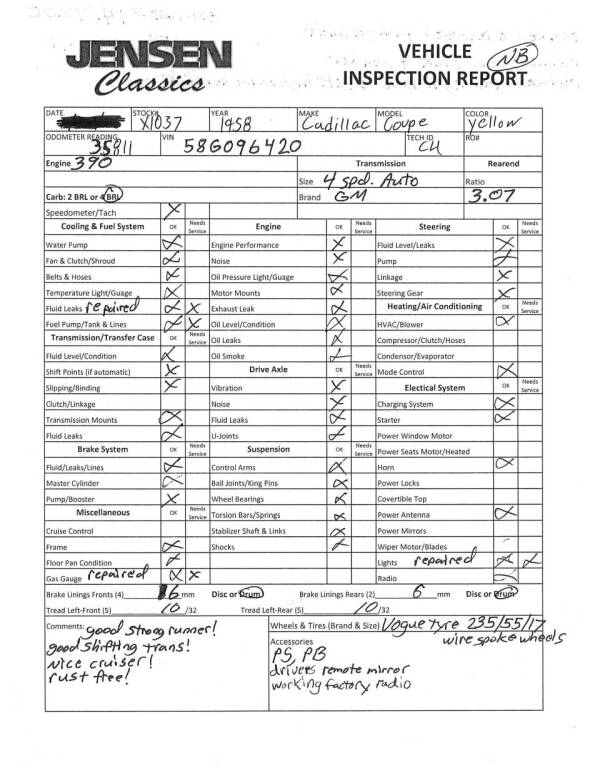 JENSEN Classics
VEHICLE NB
INSPECTION REPORT
DATE STOCK# X1037 YEAR 1958 MAKE Cadillac MODEL Coupe COLOR yellow
ODOMETER READING 35811 VIN 58G096420 TECH ID CH RO#
Engine 390 Transmission Rearend
Size 4 spd. Auto Ratio
Carb: 2 BRL or 4 BRL Brand GM 3.07
Speedometer/Tach X
Cooling & Fuel System OK Needs Service Engine OK Needs Service Steering OK Needs Service
Water Pump X Engine Performance X Fluid Level/Leaks X
Fan & Clutch/Shroud X Noise X Pump X
Belts & Hoses X Oil Pressure Light/Guage X Linkage X
Temperature Light/Guage X Motor Mounts X Steering Gear X
Fluid Leaks repaired X X Exhaust Leak X Heating/Air Conditioning OK Needs Service
Fuel Pump/Tank & Lines X X Oil Level/Condition X HVAC/Blower X
Transmission/Transfer Case OK Needs Service Oil Leaks X Compressor/Clutch/Hoses
Fluid Level/Condition X Oil Smoke X Condensor/Evaporator
Shift Points (if automatic) X Drive Axle OK Needs Service Mode Control X
Slipping/Binding X Vibration X Electical System OK Needs Service
Clutch/Linkage Noise X Charging System X
Transmission Mounts X Fluid Leaks X Starter X
Fluid Leaks X U-Joints X Power Window Motor
Brake System OK Needs Service Suspension OK Needs Service Power Seats Motor/Heated
Fluid/Leaks/Lines X Control Arms X Horn X
Master Cylinder X Ball Joints/King Pins X Power Locks
Pump/Booster X Wheel Bearings X Covertible Top
Miscellaneous OK Needs Service Torsion Bars/Springs X Power Antenna X
Cruise Control Stablizer Shaft & Links X Power Mirrors
Frame X Shocks X Wiper Motor/Blades
Floor Pan Condition X Lights repaired X X
Gas Gauge repaired X X Radio
Brake Linings Fronts (4) 6 mm Disc or Drum Brake Linings Rears (2) 6 mm Disc or Drum
Tread Left-Front (5) 10 /32 Tread Left-Rear (5) 10 /32
Comments: good strong runner!
good shifting trans!
Nice cruiser!
rust free!
Wheels & Tires (Brand & Size) Vogue tyre 235/55/17
wire spoke wheels
Accessories
PS, PB
drivers remote mirror
working factory radio